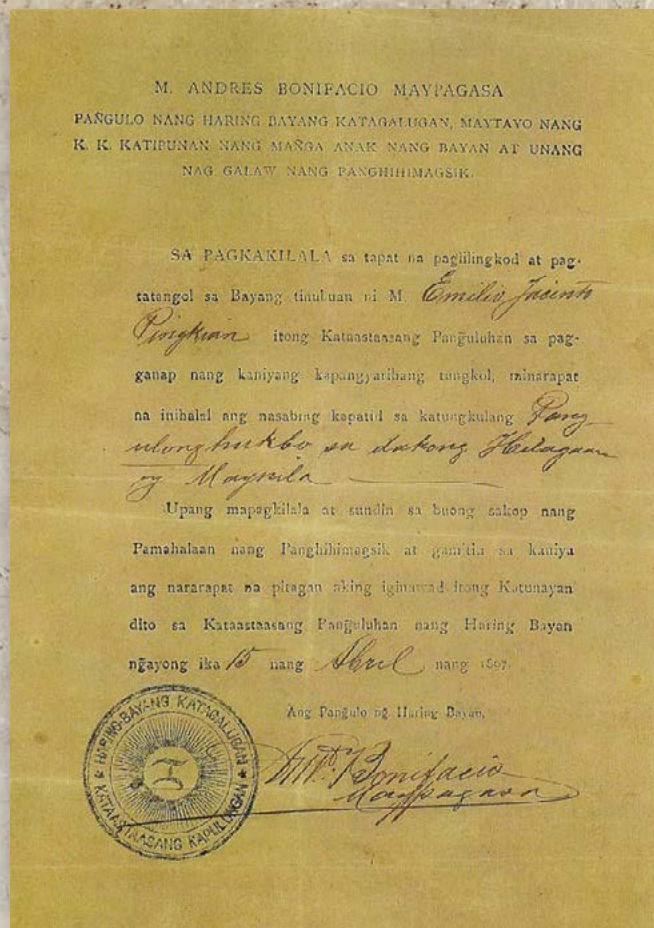 M. ANDRES BONIFACIO MAYPAGASA
PAÑGULO NANG HARING BAYANG KATAGALUGAN, MAYTAYO NANG
K. K. KATIPUNAN NANG MAÑGA ANAK NANG BAYAN AT UNANG
NAG GALAW NANG PANGHIHIMAGSIK.
SA PAGKAKILALA sa tapat na paglilingkod at pag-
tatangol sa Bayang tinubuan ni M. Emilio Jacinto
Pingkian itong Kataastaasang Pang̃uluhan sa pag-
ganap nang kaniyang kapangyarihang tungkol, minarapat
na inihalal ang nasabing kapatid sa katungkulang Pang
ulong hukbo sa dakong Hilagaan
ng Maynila
Upang mapagkilala at sundin sa buong sakop nang
Pamahalaan nang Panghihimagsik at gamitin sa kaniya
ang nararapat na pitagan aking iginawad itong Katunayan
dito sa Kataastaasang Pang̃uluhan nang Haring Bayan
ng̃ayong ika 15 nang Abril nang 1897
Ang Pang̃ulo ng Haring Bayan,
And. Bonifacio
Maypagasa
HARING-BAYANG KATAGALUGAN
KATAASTAASANG KAPULUNGAN